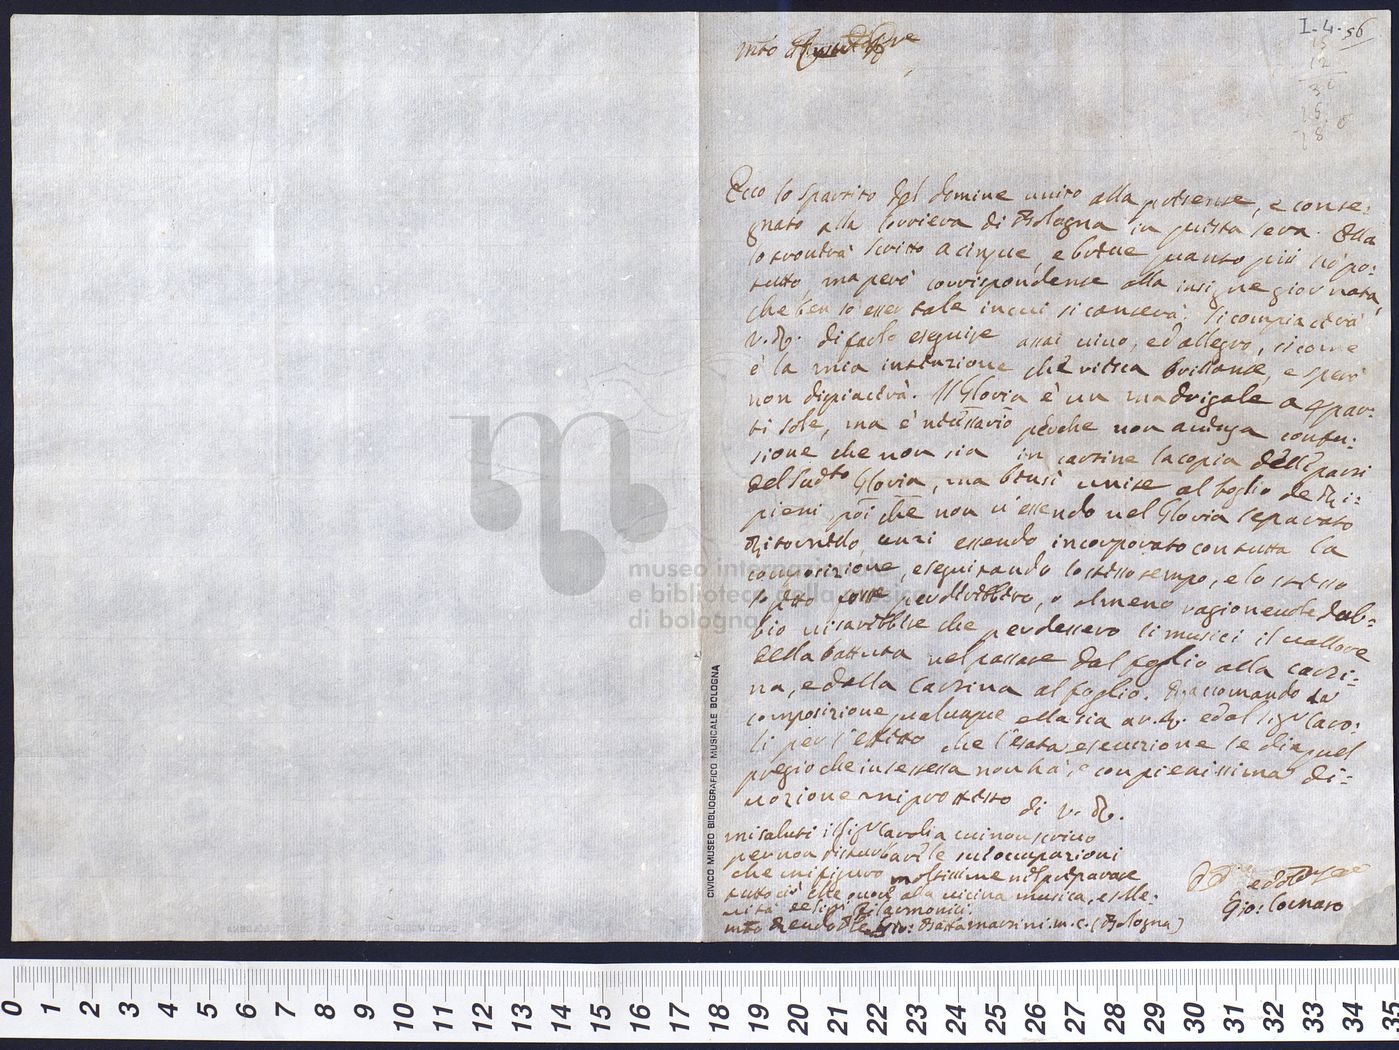 I-4-56
15
12
36
Ecco lo spartito del domine unito alla presente, e conse:
gnato alla Corriera di Bologna in questa sera. Ella
lo troverà scritto a cinque, e breve quanto più hò po:
tutto ma però corrispondente alla insigne giornata,
che ben sò esser tale in cui si canterà: si compiacerà
V. R. di farlo eseguire assai vivo, ed allegro, sicome
è la mia intenzione che riesca brillante, e sperò
non dispiacerà. Il Gloria è un madrigale a 4 par:
ti sole, ma è necessario perche non accada confu:
sione che non sia in cartine la copia delle parti
del Sudto Gloria, ma bensi unite al foglio de Ri:
pieni, poi che non v'essendo nel Gloria separato
Ritornello, anzi essendo incorporato con tutta la
composizione, e seguitando lo stesso tempo, e lo stesso
forse perderebbero, o almeno ragionevole dub:
bio vi sarebbe che perdessero li musici il vallore
della battuta nel passare dal foglio alla carti:
na, e dalla cartina al foglio. Raccomando la
composizione qualunque ella sia a V. R. ed al Sigr Caro:
li per l'effetto che l'esata esecuzione le dia quel
pregio che in se stessa non hà, e con pienissima di:
vozione mi protesto di V. R.
mi saluti il Sigr Caroli a cui non scrivo
per non disturbare le sue occupazioni
che mi figuro moltissime nel preparare
tutto ciò che alla vicina musica, e solle:
nità de Sigri Filarmonici.
Gio: Cornaro
mto Rendo Pre Gio: Batta martini. m. c. (Bologna)
CIVICO MUSEO BIBLIOGRAFICO MUSICALE BOLOGNA
museo internazionale
e biblioteca della musica
di bologna
0 1 2 3 4 5 6 7 8 9 10 11 12 13 14 15 16 17 18 19 20 21 22 23 24 25 26 27 28 29 30 31 32 33 34 35